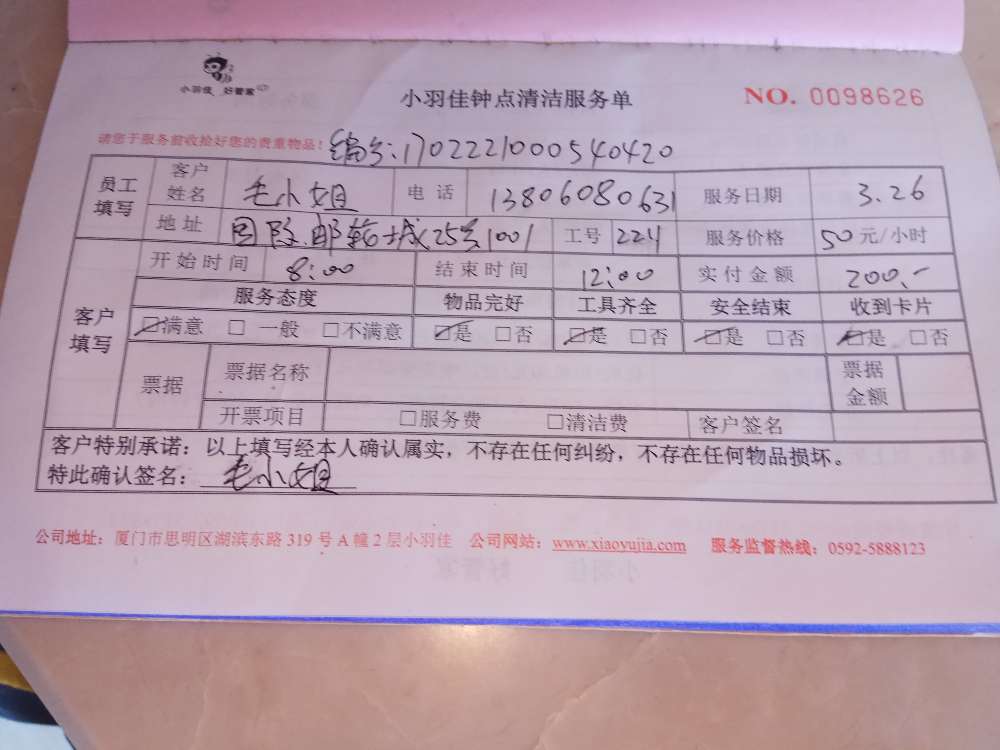 小羽佳 好管家
小羽佳钟点清洁服务单 NO. 0098626
请您于服务前收拾好您的贵重物品! 编号:1702221000540420
员工填写 客户姓名 毛小姐 电话 13806080631 服务日期 3.26
地址 国际邮轮城25号1001 工号 224 服务价格 50元/小时
客户填写 开始时间 8:00 结束时间 12:00 实付金额 200.-
服务态度 物品完好 工具齐全 安全结束 收到卡片
☑满意 □一般 □不满意 ☑是 □否 ☑是 □否 ☑是 □否 ☑是 □否
票据 票据名称 票据金额
开票项目 □服务费 □清洁费 客户签名
客户特别承诺:以上填写经本人确认属实,不存在任何纠纷,不存在任何物品损坏。
特此确认签名:毛小姐
公司地址:厦门市思明区湖滨东路319号A幢2层小羽佳 公司网站:www.xiaoyujia.com 服务监督热线:0592-5888123